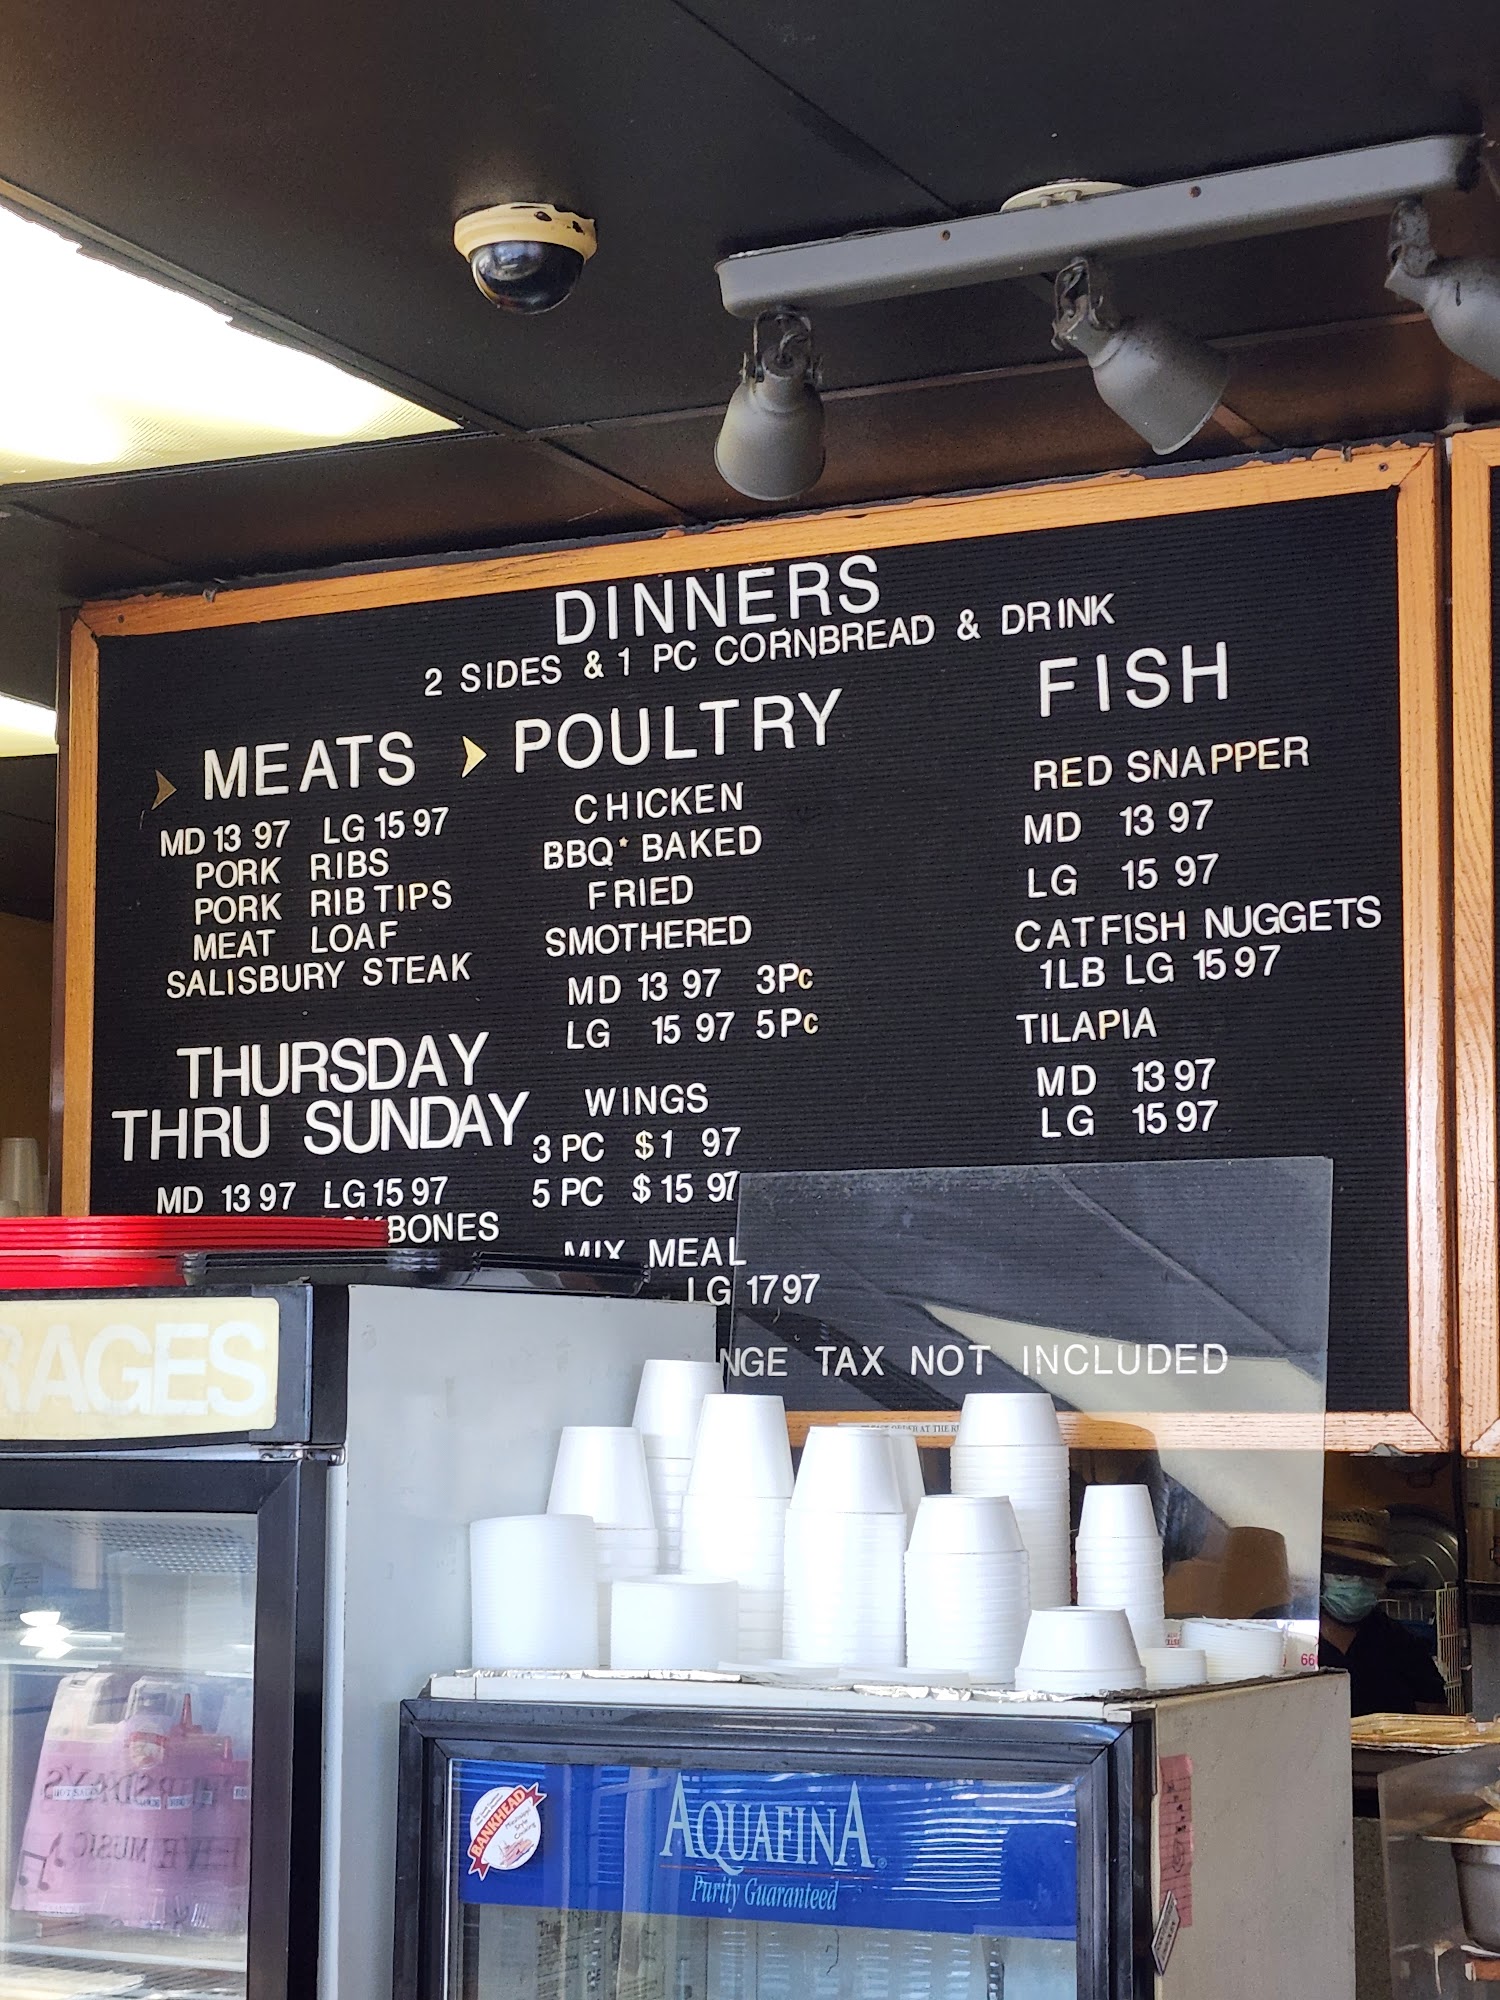 DINNERS
2 SIDES & 1 PC CORNBREAD & DRINK
MEATS
MD 13 97 LG 15 97
PORK RIBS
PORK RIB TIPS
MEAT LOAF
SALISBURY STEAK
THURSDAY
THRU SUNDAY
MD 13 97 LG 15 97
BONES
POULTRY
CHICKEN
BBQ * BAKED
FRIED
SMOTHERED
MD 13 97 3Pc
LG 15 97 5Pc
WINGS
3 PC $1 97
5 PC $15 97
MIX MEAL
LG 17 97
FISH
RED SNAPPER
MD 13 97
LG 15 97
CATFISH NUGGETS
1LB LG 15 97
TILAPIA
MD 13 97
LG 15 97
NGE TAX NOT INCLUDED
RAGES
BANKHEAD
Mississippi
Style
Cooking
AQUAFINA
Purity Guaranteed
LIVE MUSIC